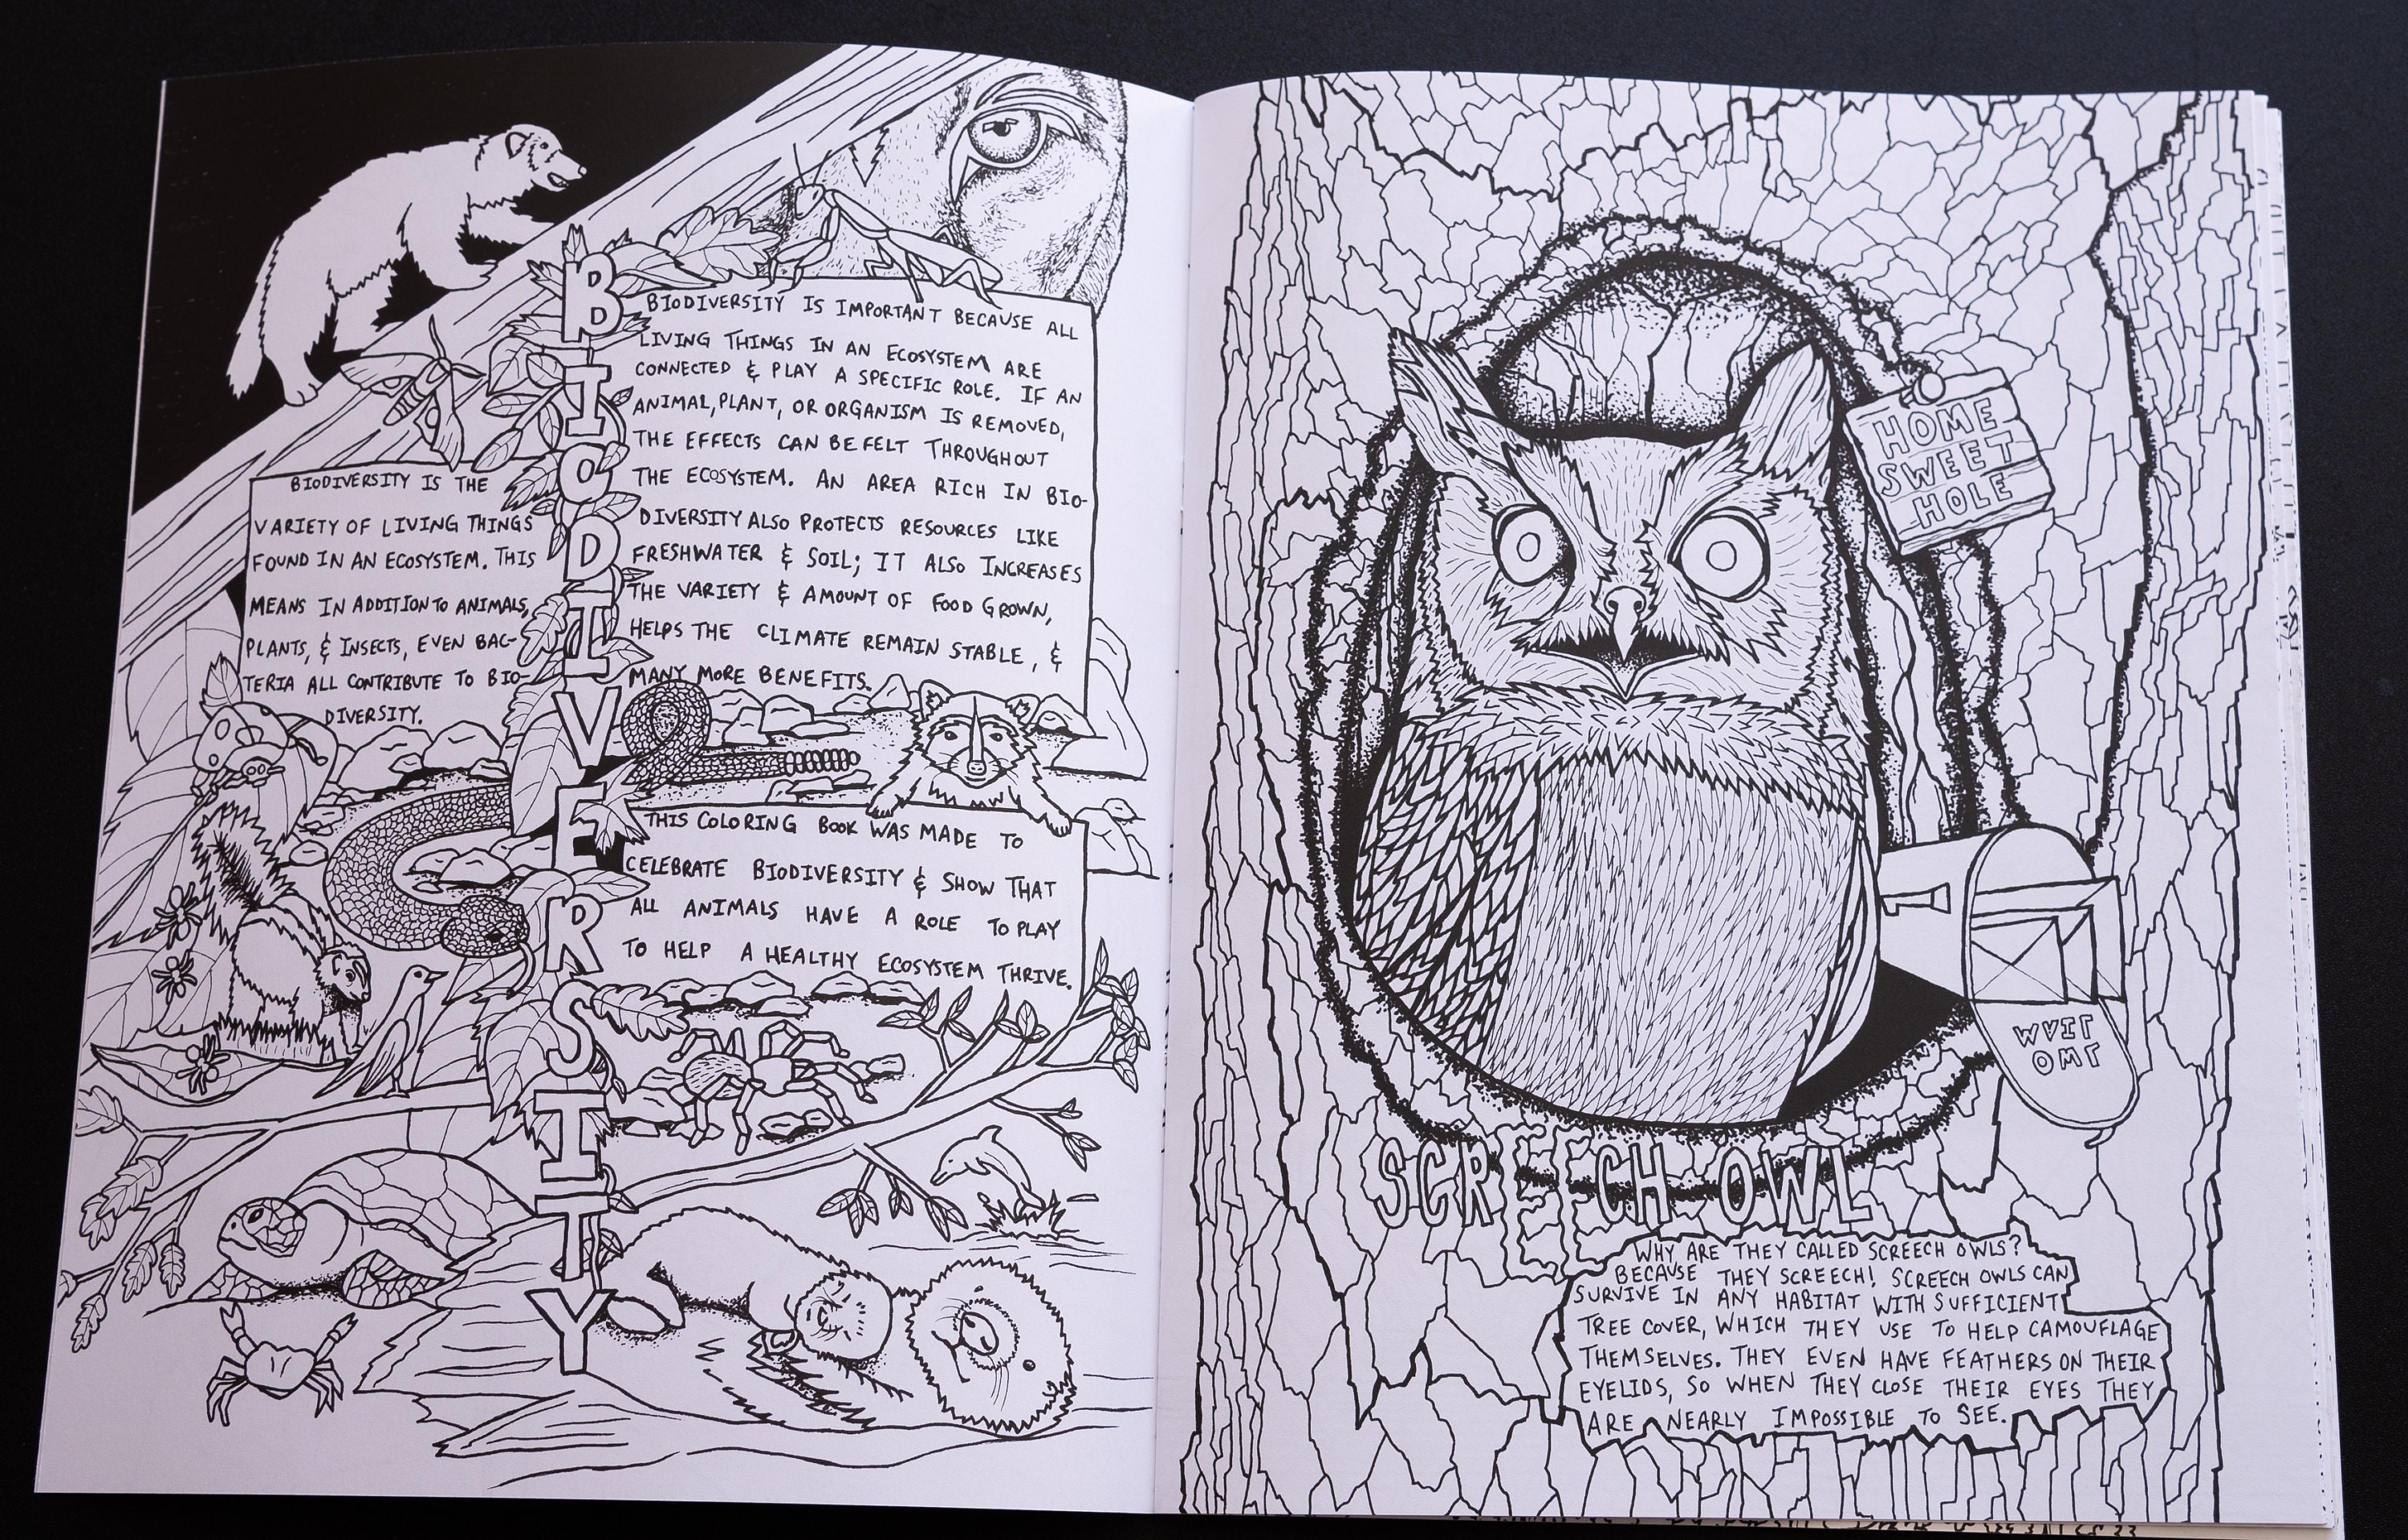 BIODIVERSITY
BIODIVERSITY IS THE
VARIETY OF LIVING THINGS
FOUND IN AN ECOSYSTEM. THIS
MEANS IN ADDITION TO ANIMALS,
PLANTS, & INSECTS, EVEN BAC-
TERIA ALL CONTRIBUTE TO BIO-
DIVERSITY.
BIODIVERSITY IS IMPORTANT BECAUSE ALL
LIVING THINGS IN AN ECOSYSTEM ARE
CONNECTED & PLAY A SPECIFIC ROLE. IF AN
ANIMAL, PLANT, OR ORGANISM IS REMOVED,
THE EFFECTS CAN BE FELT THROUGHOUT
THE ECOSYSTEM. AN AREA RICH IN BIO-
DIVERSITY ALSO PROTECTS RESOURCES LIKE
FRESHWATER & SOIL; IT ALSO INCREASES
THE VARIETY & AMOUNT OF FOOD GROWN,
HELPS THE CLIMATE REMAIN STABLE, &
MANY MORE BENEFITS.
THIS COLORING BOOK WAS MADE TO
CELEBRATE BIODIVERSITY & SHOW THAT
ALL ANIMALS HAVE A ROLE TO PLAY
TO HELP A HEALTHY ECOSYSTEM THRIVE.
HOME
SWEET
HOLE
OWL
MAIL
SCREECH OWL
WHY ARE THEY CALLED SCREECH OWLS?
BECAUSE THEY SCREECH! SCREECH OWLS CAN
SURVIVE IN ANY HABITAT WITH SUFFICIENT
TREE COVER, WHICH THEY USE TO HELP CAMOUFLAGE
THEMSELVES. THEY EVEN HAVE FEATHERS ON THEIR
EYELIDS, SO WHEN THEY CLOSE THEIR EYES THEY
ARE NEARLY IMPOSSIBLE TO SEE.